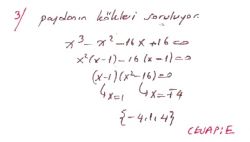 3/ paydanın kökleri soruluyor.
x³ - x² - 16x + 16 = 0
x²(x-1) - 16(x-1) = 0
(x-1)(x²-16) = 0
↳ x=1 ↳ x=∓4
{-4, 1, 4}
CEVAP: E